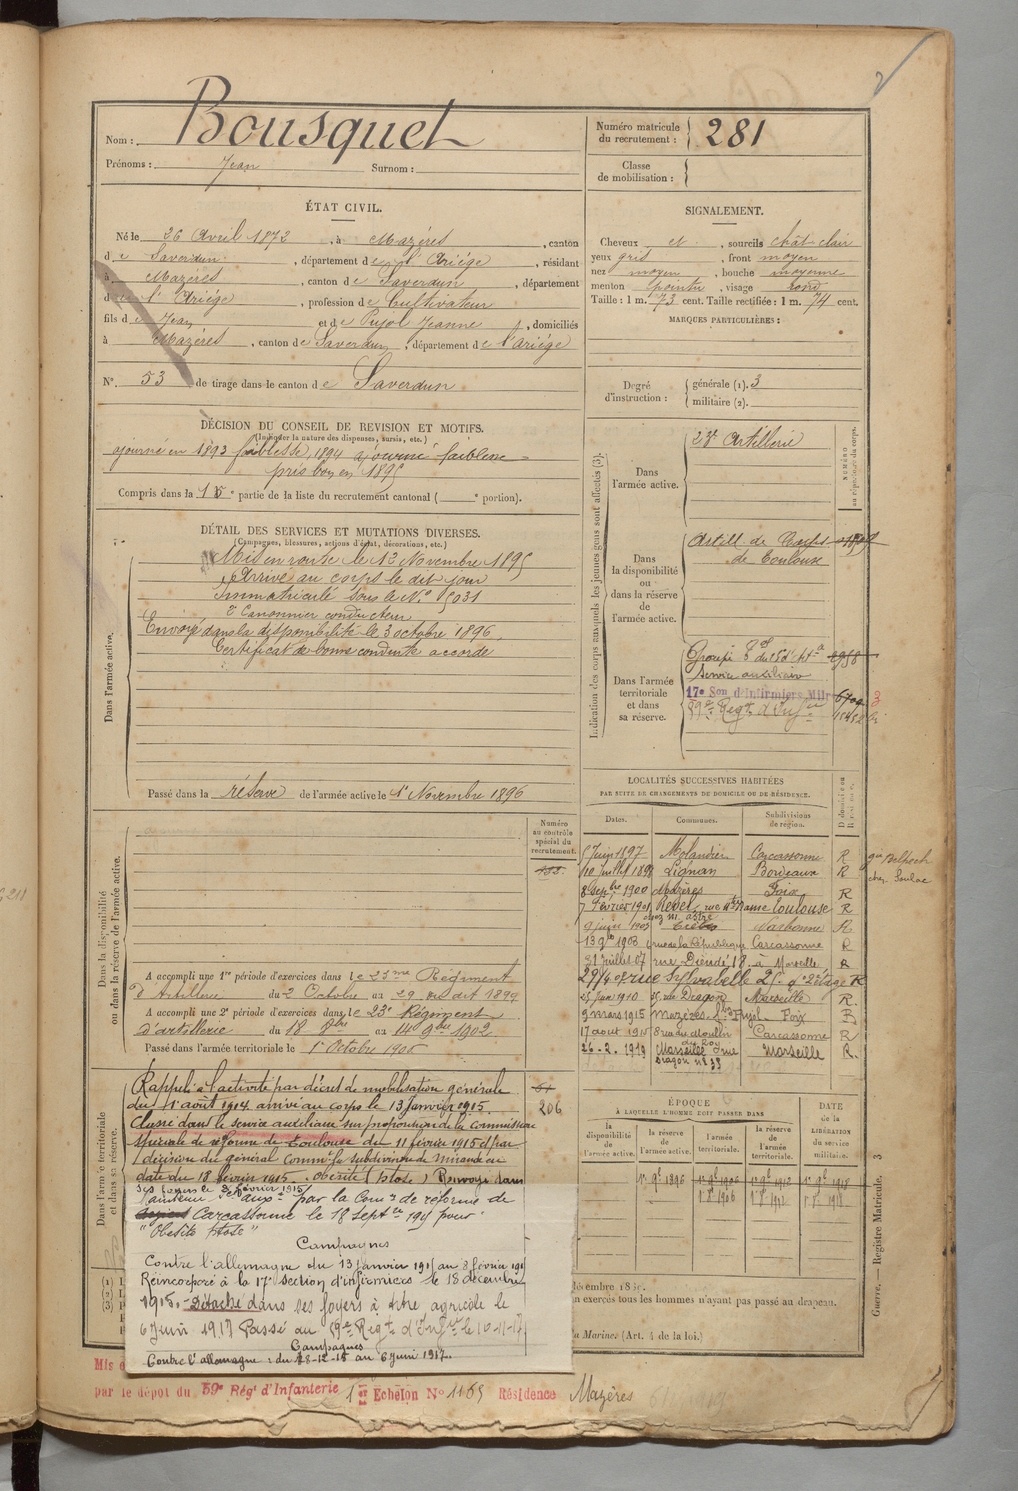 Nom : Bousquet
Prénoms : Jean Surnom :
Numéro matricule du recrutement : 281
Classe de mobilisation :
ÉTAT CIVIL.
Né le 26 Avril 1872, à Mazères, canton
de Saverdun, département de l'Ariége, résidant
à Mazères, canton de Saverdun, département
de l'Ariége, profession de Cultivateur
fils de Jean et de Pujol Jeanne, domiciliés
à Mazères, canton de Saverdun, département de l'Ariége
N° 53 de tirage dans le canton de Saverdun
SIGNALEMENT.
Cheveux et, sourcils chât clair
yeux gris, front moyen
nez moyen, bouche moyenne
menton pointu, visage rond
Taille : 1 m. 73 cent. Taille rectifiée : 1 m. 74 cent.
MARQUES PARTICULIÈRES :
Degré d'instruction : générale (1). 3
militaire (2).
DÉCISION DU CONSEIL DE REVISION ET MOTIFS.
(Indiquer la nature des dispenses, sursis, etc.)
ajourné en 1893 faiblesse, 1894 ajourné faiblesse
pris bon en 1895
Compris dans la 1e partie de la liste du recrutement cantonal ( e portion).
DÉTAIL DES SERVICES ET MUTATIONS DIVERSES.
(Campagnes, blessures, actions d'éclat, décorations, etc.)
Dans l'armée active.
Mis en route le 13 Novembre 1895
Arrivé au corps le dit jour
Immatriculé sous le N° 5031
2e Canonnier conducteur
Envoyé dans la disponibilité le 3 octobre 1896.
Certificat de bonne conduite accordé
Passé dans la réserve de l'armée active le 1er Novembre 1896
Indication des corps auxquels les jeunes gens sont affectés (3).
NUMÉRO au répertoire du corps.
Dans l'armée active.
23e Artillerie
Dans la disponibilité ou dans la réserve de l'armée active.
Artill de
de Toulouse
Dans l'armée territoriale et dans sa réserve.
Groupe
service auxiliaire
17e Son d'Infirmiers Mil
59e Regt d'Infie
3
LOCALITÉS SUCCESSIVES HABITÉES
PAR SUITE DE CHANGEMENTS DE DOMICILE OU DE RÉSIDENCE.
Dates. Communes. Subdivisions de région.
Juin 1897 Molandier Carcassonne R
10 Juillet 1898 Lignan Bordeaux R
8 Sepbre 1900 Mazères Foix R
7 Février 1901 Revel, Toulouse R
9 juin 1903 Narbonne R
13 9bre 1903 rue de la République Carcassonne R
31 Juillet 07 rue Dieudé 18 à Marseille R
29/4 08 rue Sylvabelle 25 2e étage R
25 Juin 1910 rue Dragon Marseille R
9 mars 1915 Mazères Foix R
17 août 1915 8 rue du Moulin Carcassonne R
26-2-1919 Marseille rue Marseille R.
Dragon n° 33
Dans la disponibilité ou dans la réserve de l'armée active.
Numéro au contrôle spécial du recrutement.
A accompli une 1re période d'exercices dans le 23me Régiment
d'Artillerie du 2 Octobre au 29 du dit 1899
A accompli une 2e période d'exercices dans le 23e Régiment
d'artillerie du 18 8bre au 14 9bre 1902
Passé dans l'armée territoriale le 1er Octobre 1906
Dans l'armée territoriale et dans sa réserve.
206
Rappelé à l'activité par décret de mobilisation générale
du 1er août 1914 arrivé au corps le 13 Janvier 1915.
Classé dans le service auxiliaire sur proposition de la commission
spéciale de réforme de Toulouse du 11 février 1915 et par
décision du général Commt la subdivision de Mirande en
date du 18 février 1915. obésité (ptose) Renvoyé dans
ses foyers le 8 février 1915
Maintenu serv. auxe par la Comon de réforme de
Carcassonne le 18 Septbre 1915 pour
"Obésité ptose"
Campagnes
Contre l'allemagne du 13 Janvier 1915 au 8 février 1915
Réincorporé à la 17e section d'infirmiers le 18 décembre
1915. - Détaché dans ses foyers à titre agricole le
6 Juin 1917 Passé au 59e Regt d'Infie le 10-11-17
Campagnes
Contre l'allemagne : du 18-12-15 au 6 juin 1917.
ÉPOQUE
À LAQUELLE L'HOMME DOIT PASSER DANS
la disponibilité de l'armée active. la réserve de l'armée active. l'armée territoriale. la réserve de l'armée territoriale.
DATE de la LIBÉRATION du service militaire.
1er 9bre 1896 1er 9bre 1906 1er 9bre 1912 1er 9bre 1918
1er 8bre 1906 1er 8bre 1912 1er 8bre 1918
Guerre. — Registre Matricule. 3
n exercés tous les hommes n'ayant pas passé au drapeau.
Marines (Art. 4 de la loi.)
Mis
par le dépôt du 59e Régt d'Infanterie 1er Echelon N° 1165 Résidence Mazères